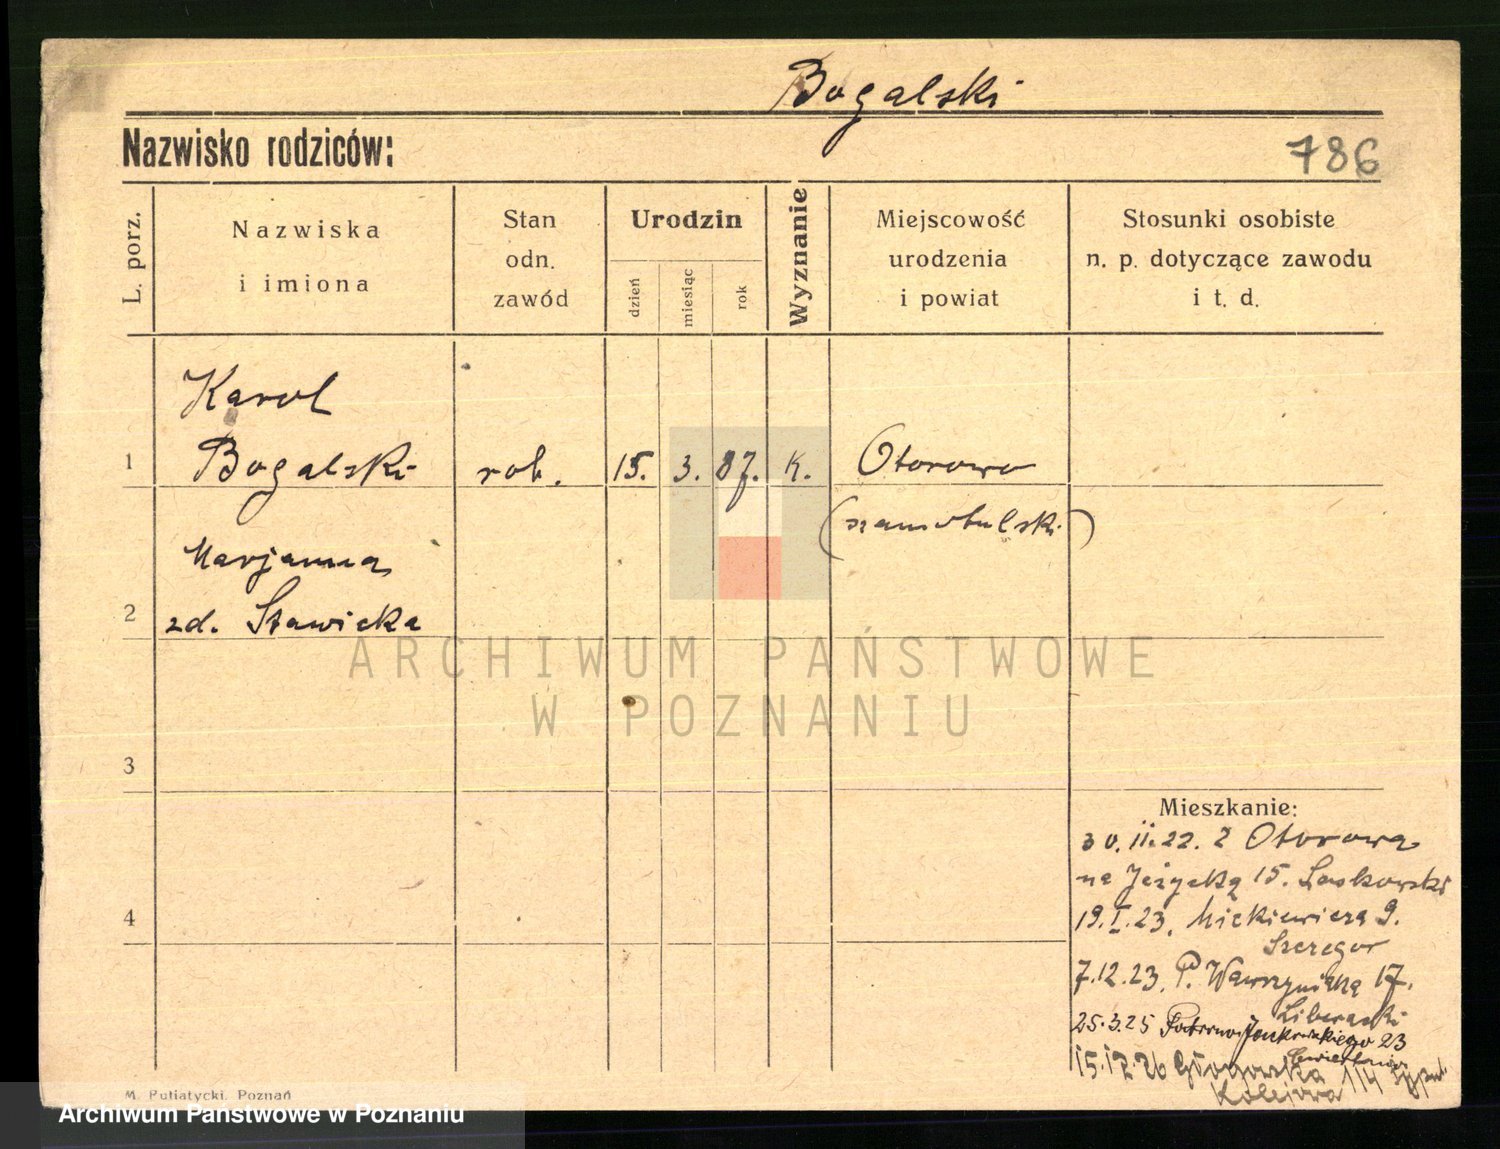 Bogalski
Nazwisko rodziców:
786
L. porz.
Nazwiska
i imiona
Stan
odn.
zawód
Urodzin
dzień
miesiąc
rok
Wyznanie
Miejscowość
urodzenia
i powiat
Stosunki osobiste
n. p. dotyczące zawodu
i t. d.
Karol
1 Bogalski rob. 15. 3. 87. K. Otorowo
(szamotulski)
Marjanna
2 zd. Stawicka
ARCHIWUM PAŃSTWOWE
W POZNANIU
3
Mieszkanie:
30.11.22. z Otorowa
na Jeżycką 15. Laskowski
4
19.I.23. Mickiewicza 9.
Szeregor
7.12.23. P. Wawrzyniaka 17.
25.3.25 Jackowskiego 23
15.12.26 Głogowska
Kolejowa 114
M. Putiatycki, Poznań
Archiwum Państwowe w Poznaniu